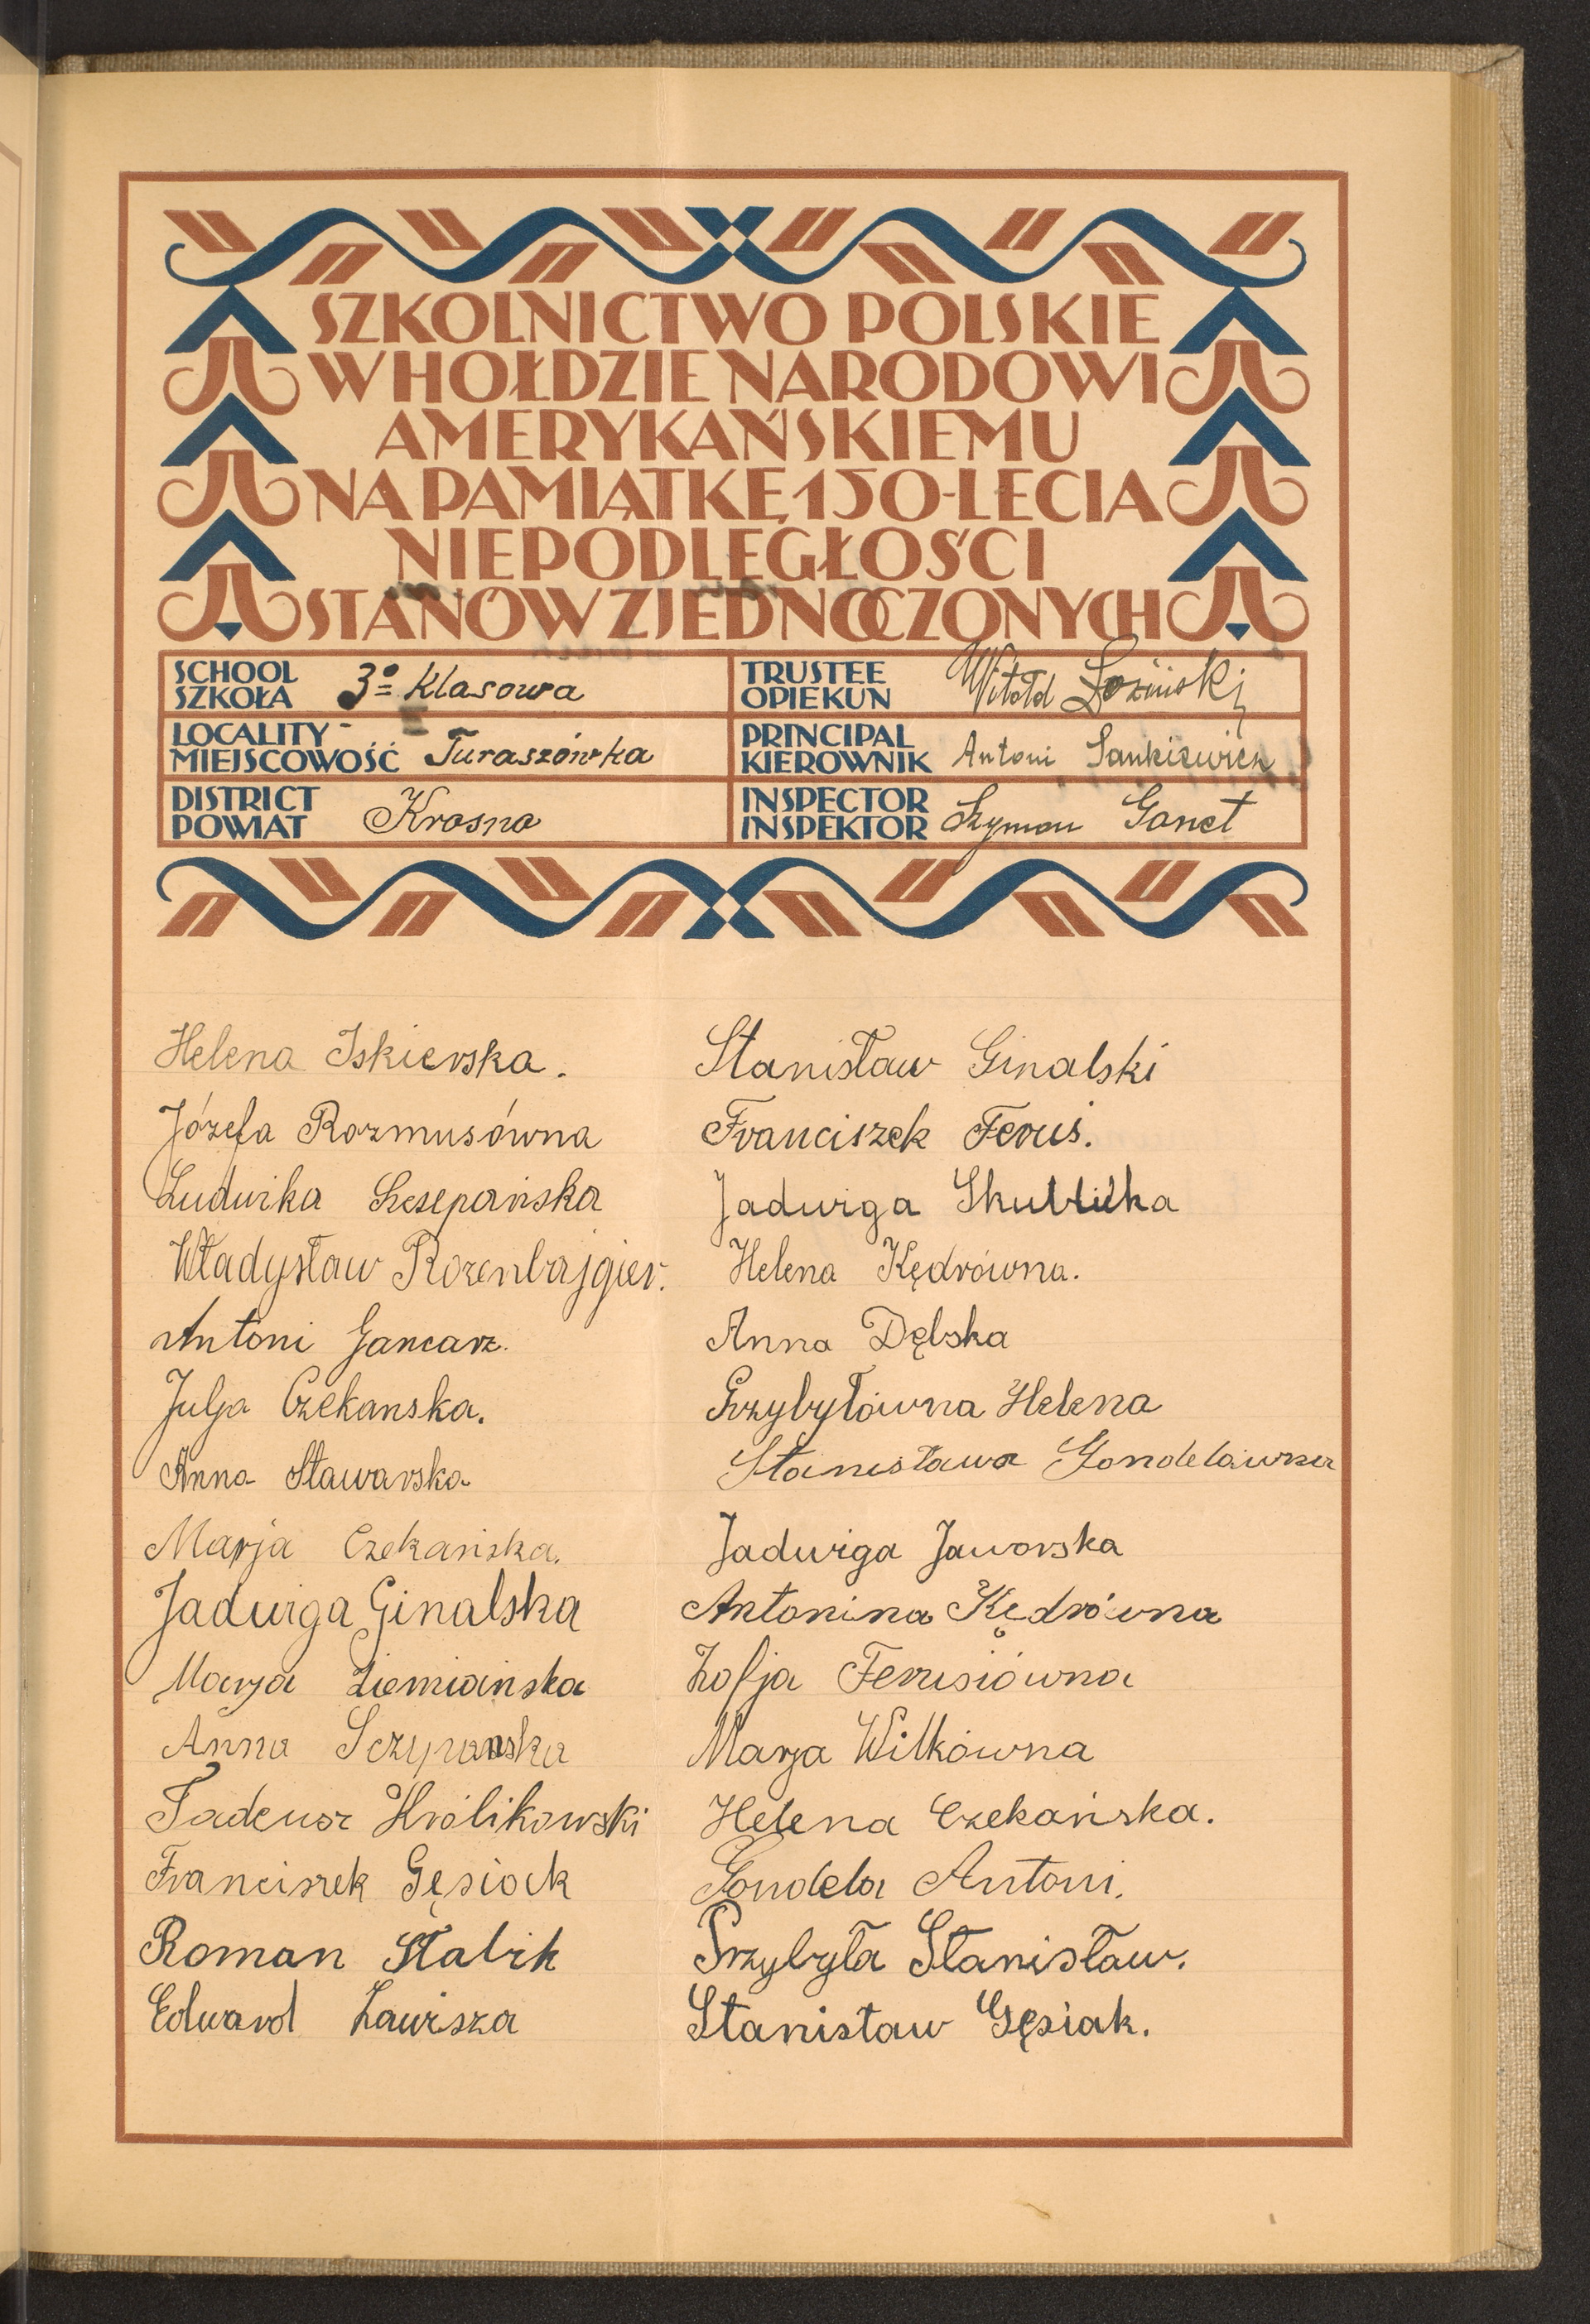 SZKOLNICTWO POLSKIE
W HOŁDZIE NARODOWI
AMERYKAŃSKIEMU
NA PAMIĄTKĘ 150-LECIA
NIEPODLEGŁOŚCI
STANÓW ZJEDNOCZONYCH
SCHOOL
SZKOŁA 3º Klasowa
TRUSTEE
OPIEKUN Witołd Łoziński
LOCALITY
MIEJSCOWOŚĆ Turaszówka
PRINCIPAL
KIEROWNIK Antoni Sankiewicz
DISTRICT
POWIAT Krosno
INSPECTOR
INSPEKTOR Szymon Gonet
Helena Iskierska.
Józefa Rozmusówna
Ludwika Szczepańska
Władysław Rozenbajgier.
Antoni Gancarz.
Julja Czekanska.
Anna Stawarska
Marja Czekańska.
Jadwiga Ginalska
Marja Ziemiańska
Anna Sczypanska
Tadeusz Królikowski
Franciszek Gęsiock
Roman Stabik
Edward Zawisza
Stanisław Ginalski
Franciszek Feruś.
Jadwiga
Helena Kędrówna.
Anna Dębska
Przybyłówna Helena
Stanisława Gondelówna
Jadwiga Jaworska
Antonina Kędrówna
Zofja Ferusiówna
Marja Wilkówna
Helena Czekańska.
Gondela Antoni.
Przybyła Stanisław.
Stanisław Gęsiak.